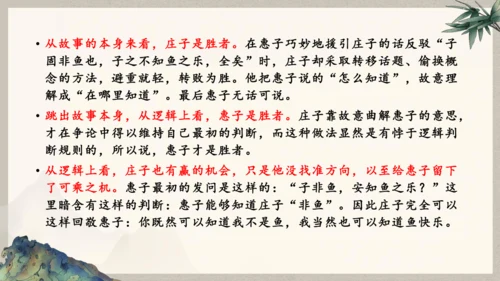 • 从故事的本身来看，庄子是胜者。在惠子巧妙地援引庄子的话反驳“子
固非鱼也，子之不知鱼之乐，全矣”时，庄子却采取转移话题、偷换概
念的方法，避重就轻，转败为胜。他把惠子说的“怎么知道”，故意理
解成“在哪里知道”。最后惠子无话可说。
• 跳出故事本身，从逻辑上看，惠子是胜者。庄子靠故意曲解惠子的意思，
才在争论中得以维持自己最初的判断，而这种做法显然是有悖于逻辑判
断规则的，所以说，惠子才是胜者。
• 从逻辑上看，庄子也有赢的机会，只是他没找准方向，以至给惠子留下
了可乘之机。惠子最初的发问是这样的：“子非鱼，安知鱼之乐？”这
里暗含有这样的判断：惠子能够知道庄子“非鱼”。因此庄子完全可以
这样回敬惠子：你既然可以知道我不是鱼，我当然也可以知道鱼快乐。